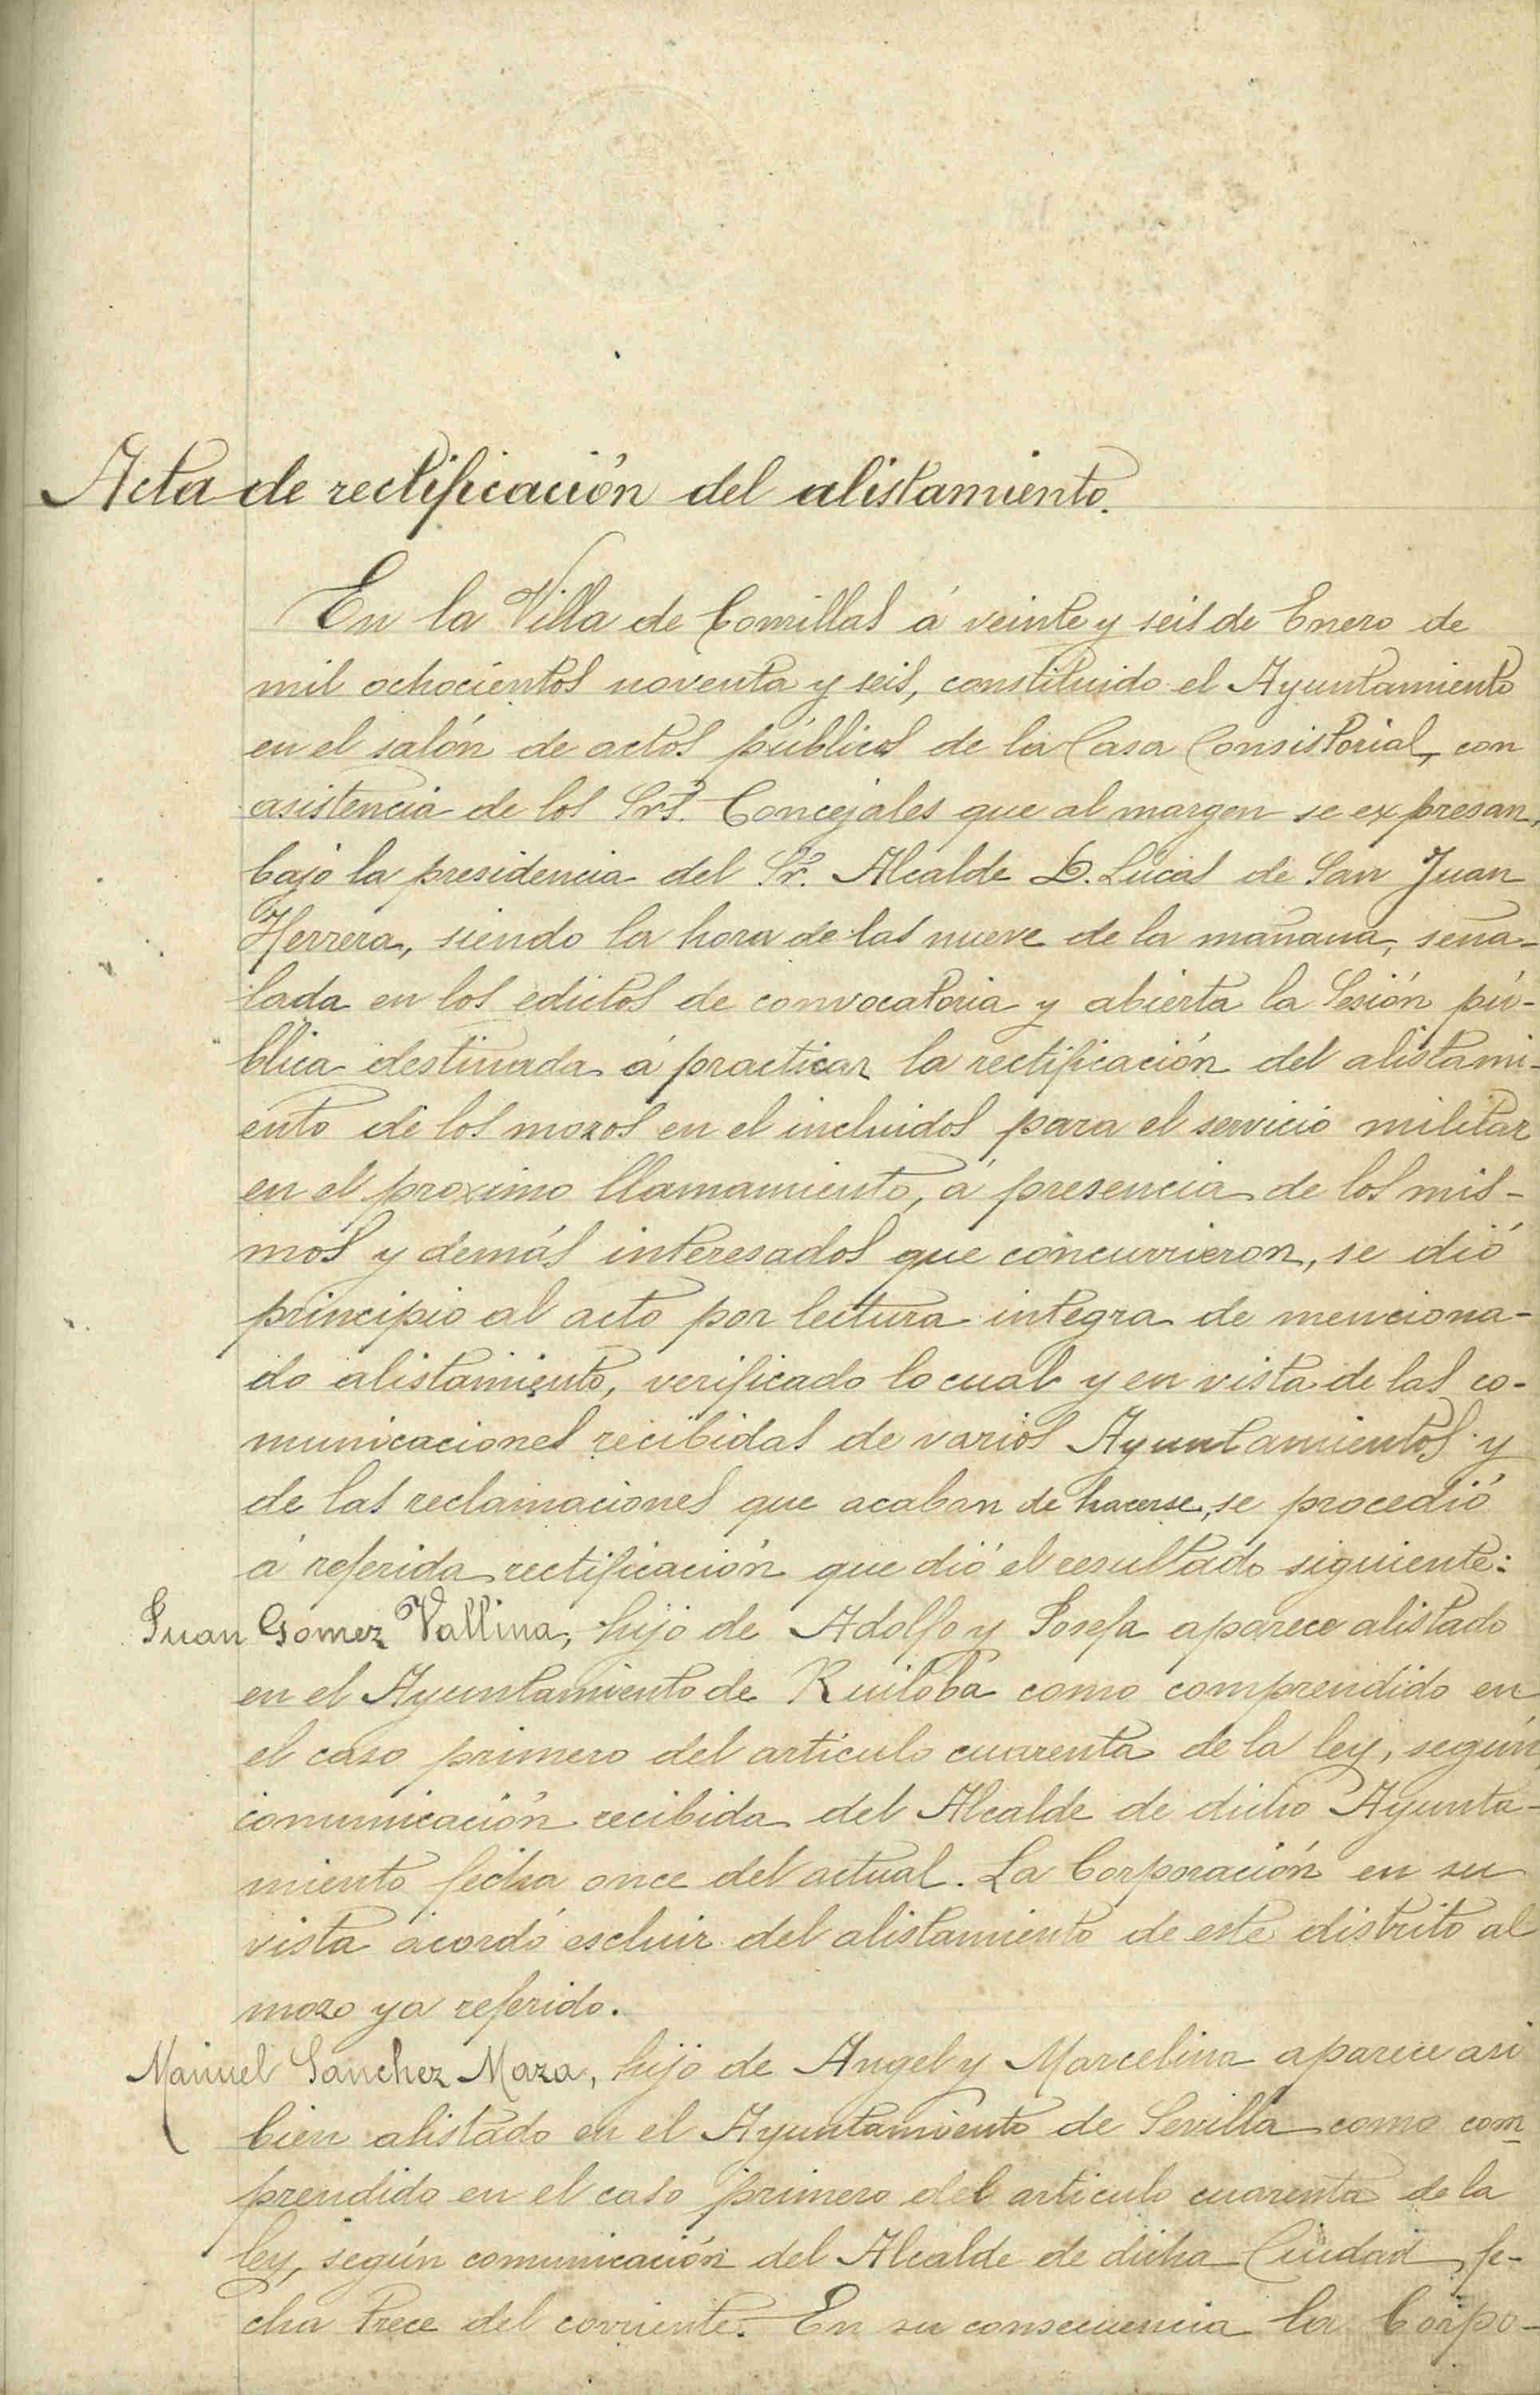 Acta de rectificación del alistamiento.
En la Villa de Comillas á veinte y seis de Enero de
mil ochocientos noventa y seis, constituido el Ayuntamiento
en el salón de actos públicos de la Casa Consistorial, con
asistencia de los Srs. Concejales que al margen se expresan,
bajo la presidencia del Sr. Alcalde D. Lucas de San Juan
Herrera, siendo la hora de las nueve de la mañana, seña-
lada en los edictos de convocatoria y abierta la Sesión pú-
blica destinada á practicar la rectificación del alistami-
ento de los mozos en el incluidos para el servicio militar
en el proximo llamamiento, á presencia de los mis-
mos y demás interesados que concurrieron, se dió
principio al acto por lectura integra de menciona-
do alistamiento, verificado lo cual y en vista de las co-
municaciones recibidas de varios Ayuntamientos y
de las reclamaciones que acaban de hacerse, se procedió
á referida rectificación que dió el resultado siguiente:
Juan Gomez Vallina, hijo de Adolfo y Josefa aparece alistado
en el Ayuntamiento de Ruiloba como comprendido en
el caso primero del articulo cuarenta de la ley, según
comunicación recibida del Alcalde de dicho Ayunta-
miento fecha once del actual. La Corporación en su
vista acordó escluir del alistamiento de este distrito al
mozo ya referido.
Manuel Sanchez Maza, hijo de Angel y Marcelina aparece asi
bien alistado en el Ayuntamiento de Sevilla como com
prendido en el caso primero del articulo cuarenta de la
ley, según comunicación del Alcalde de dicha Ciudad fe-
cha trece del corriente. En su consecuencia la Corpo-